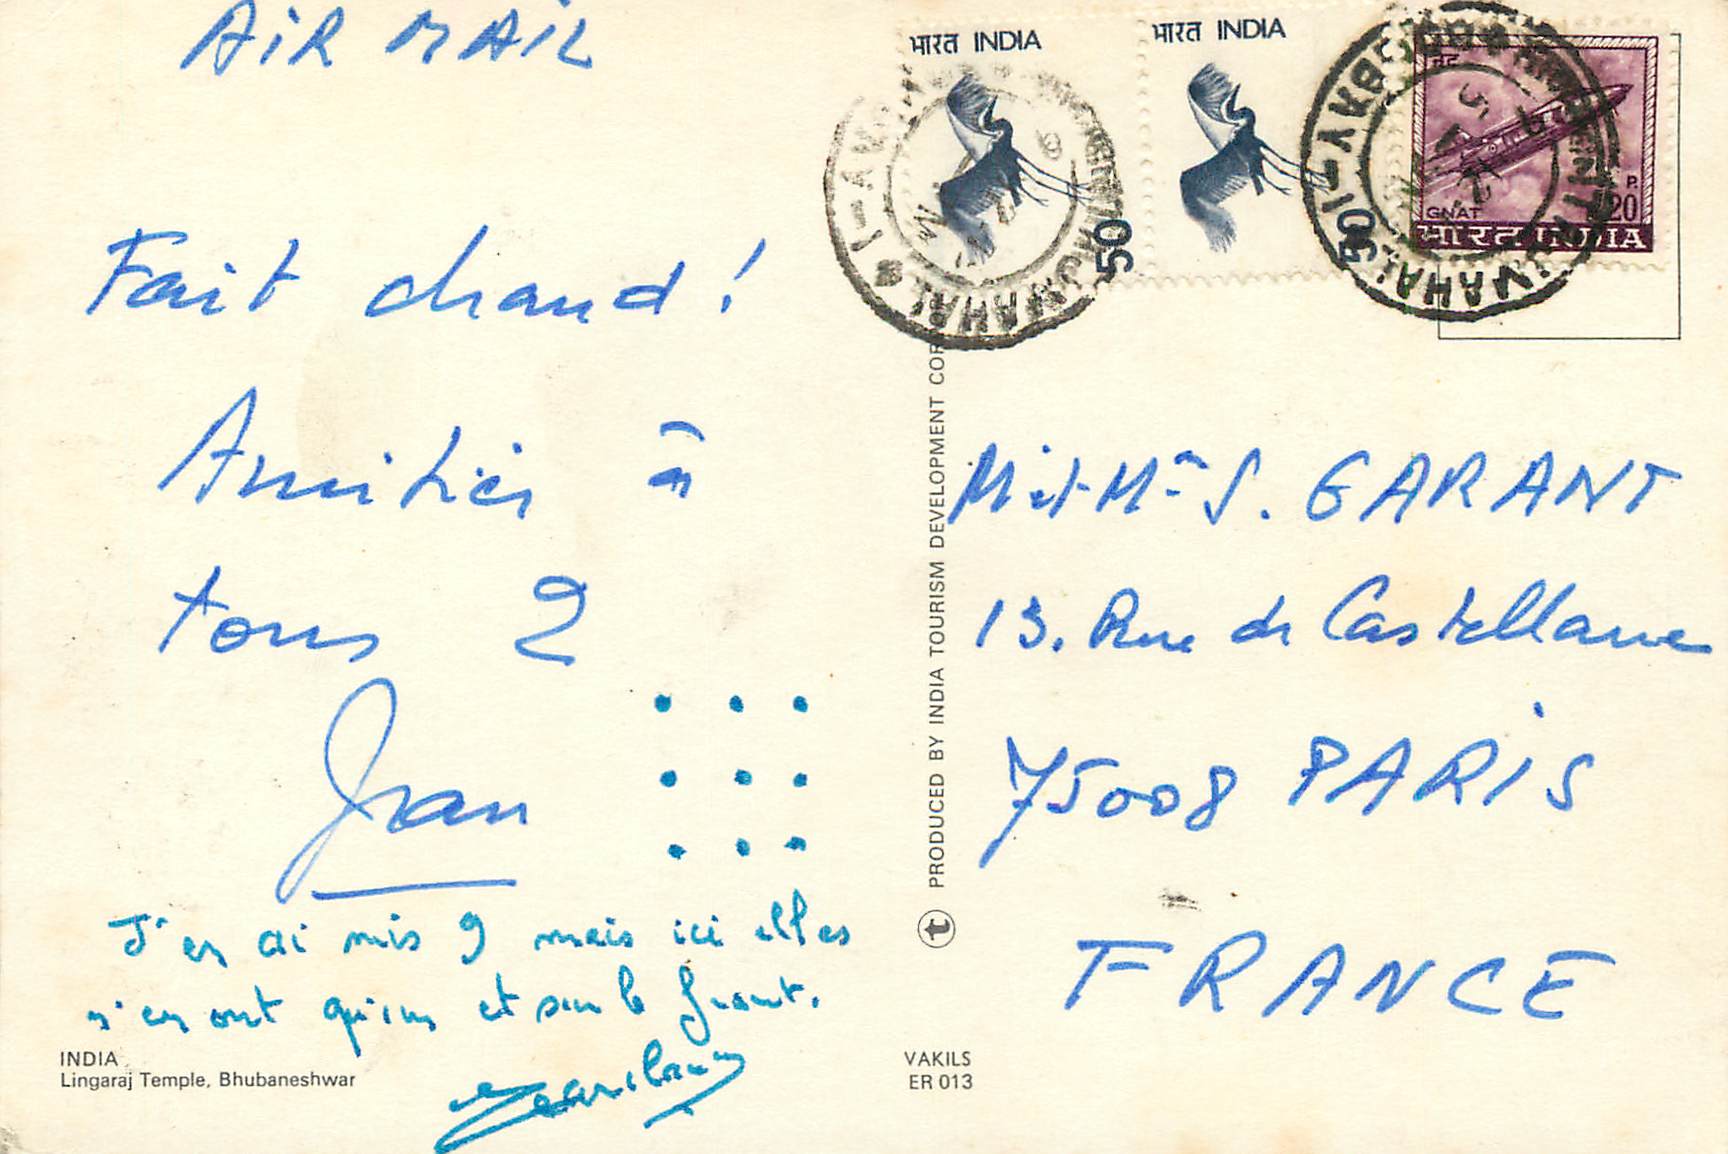 AiR MAiL
भारत INDIA
भारत INDIA
50
50
नेट
GNAT
P.
20
भारत INDIA
Fait chaud !
Amitiés à
tous 2
Jean
J'en ai mis 9 mais ici elles
n'en ont qu'un et sur le front.
INDIA
Lingaraj Temple, Bhubaneshwar
PRODUCED BY INDIA TOURISM DEVELOPMENT COR
VAKILS
ER 013
M et Me S. GARANT
13. Rue de Castellane
75008 PARiS
FRANCE